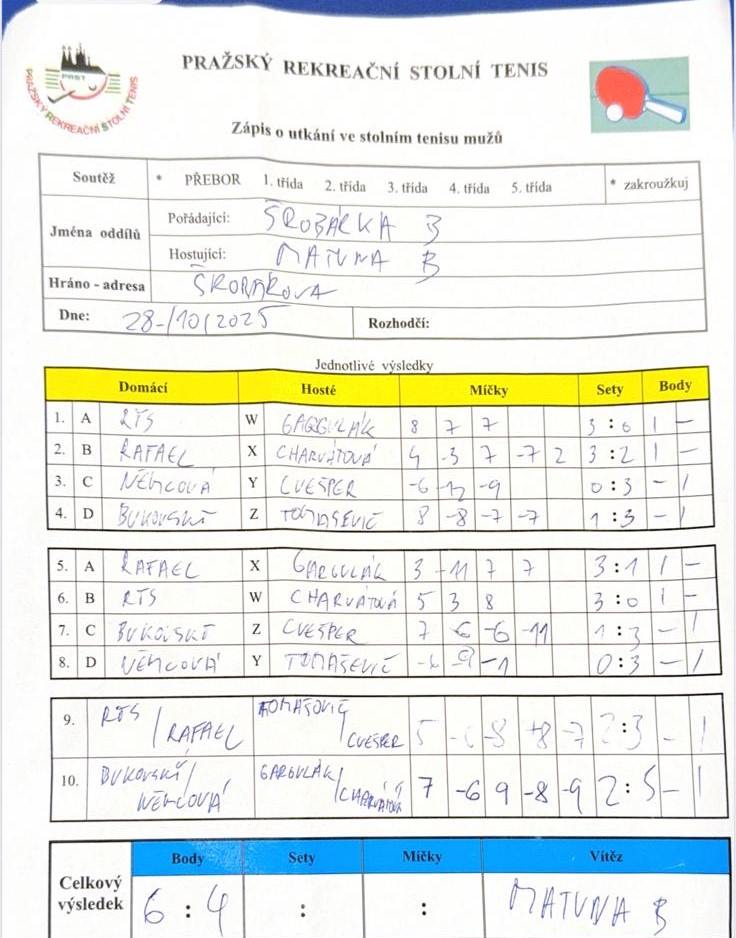 PRAŽSKÝ REKREAČNÍ STOLNÍ TENIS
PRST
PRAŽSKÝ REKREAČNÍ STOLNÍ TENIS
Zápis o utkání ve stolním tenisu mužů
Soutěž * PŘEBOR 1. třída 2. třída 3. třída 4. třída 5. třída * zakroužkuj
Jména oddílů
Pořádající: ŠROBÁRKA B
Hostující: MATUNA B
Hráno - adresa ŠROBÁROVA
Dne: 28-/10/2025 Rozhodčí:
Jednotlivé výsledky
Domácí Hosté Míčky Sety Body
1. A RTS W GARGULÁK 8 7 7 3 : 0 1 -
2. B RAFAEL X CHARVÁTOVÁ 4 -3 7 -7 2 3 : 2 1 -
3. C NĚMCOVÁ Y CVEŠPER -6 -12 -9 0 : 3 - 1
4. D BUKOVSKÝ Z TOMAŠEVIČ 8 -8 -7 -7 1 : 3 - 1
5. A RAFAEL X GARGULÁK 3 -11 7 7 3 : 1 1 -
6. B RTS W CHARVÁTOVÁ 5 3 8 3 : 0 1 -
7. C BUKOVSKÝ Z CVEŠPER 7 -6 -6 -11 1 : 3 - 1
8. D NĚMCOVÁ Y TOMAŠEVIČ -6 -9 -1 0 : 3 - 1
9. RTS / RAFAEL TOMAŠOVIČ / CVEŠPER 5 -6 -8 +8 -7 2 : 3 - 1
10. BUKOVSKÝ / NĚMCOVÁ GARGULÁK / CHARVÁTOVÁ 7 -6 9 -8 -9 2 : - 1
Body Sety Míčky Vítěz
Celkový výsledek 6 : 4 : : MATUNA B